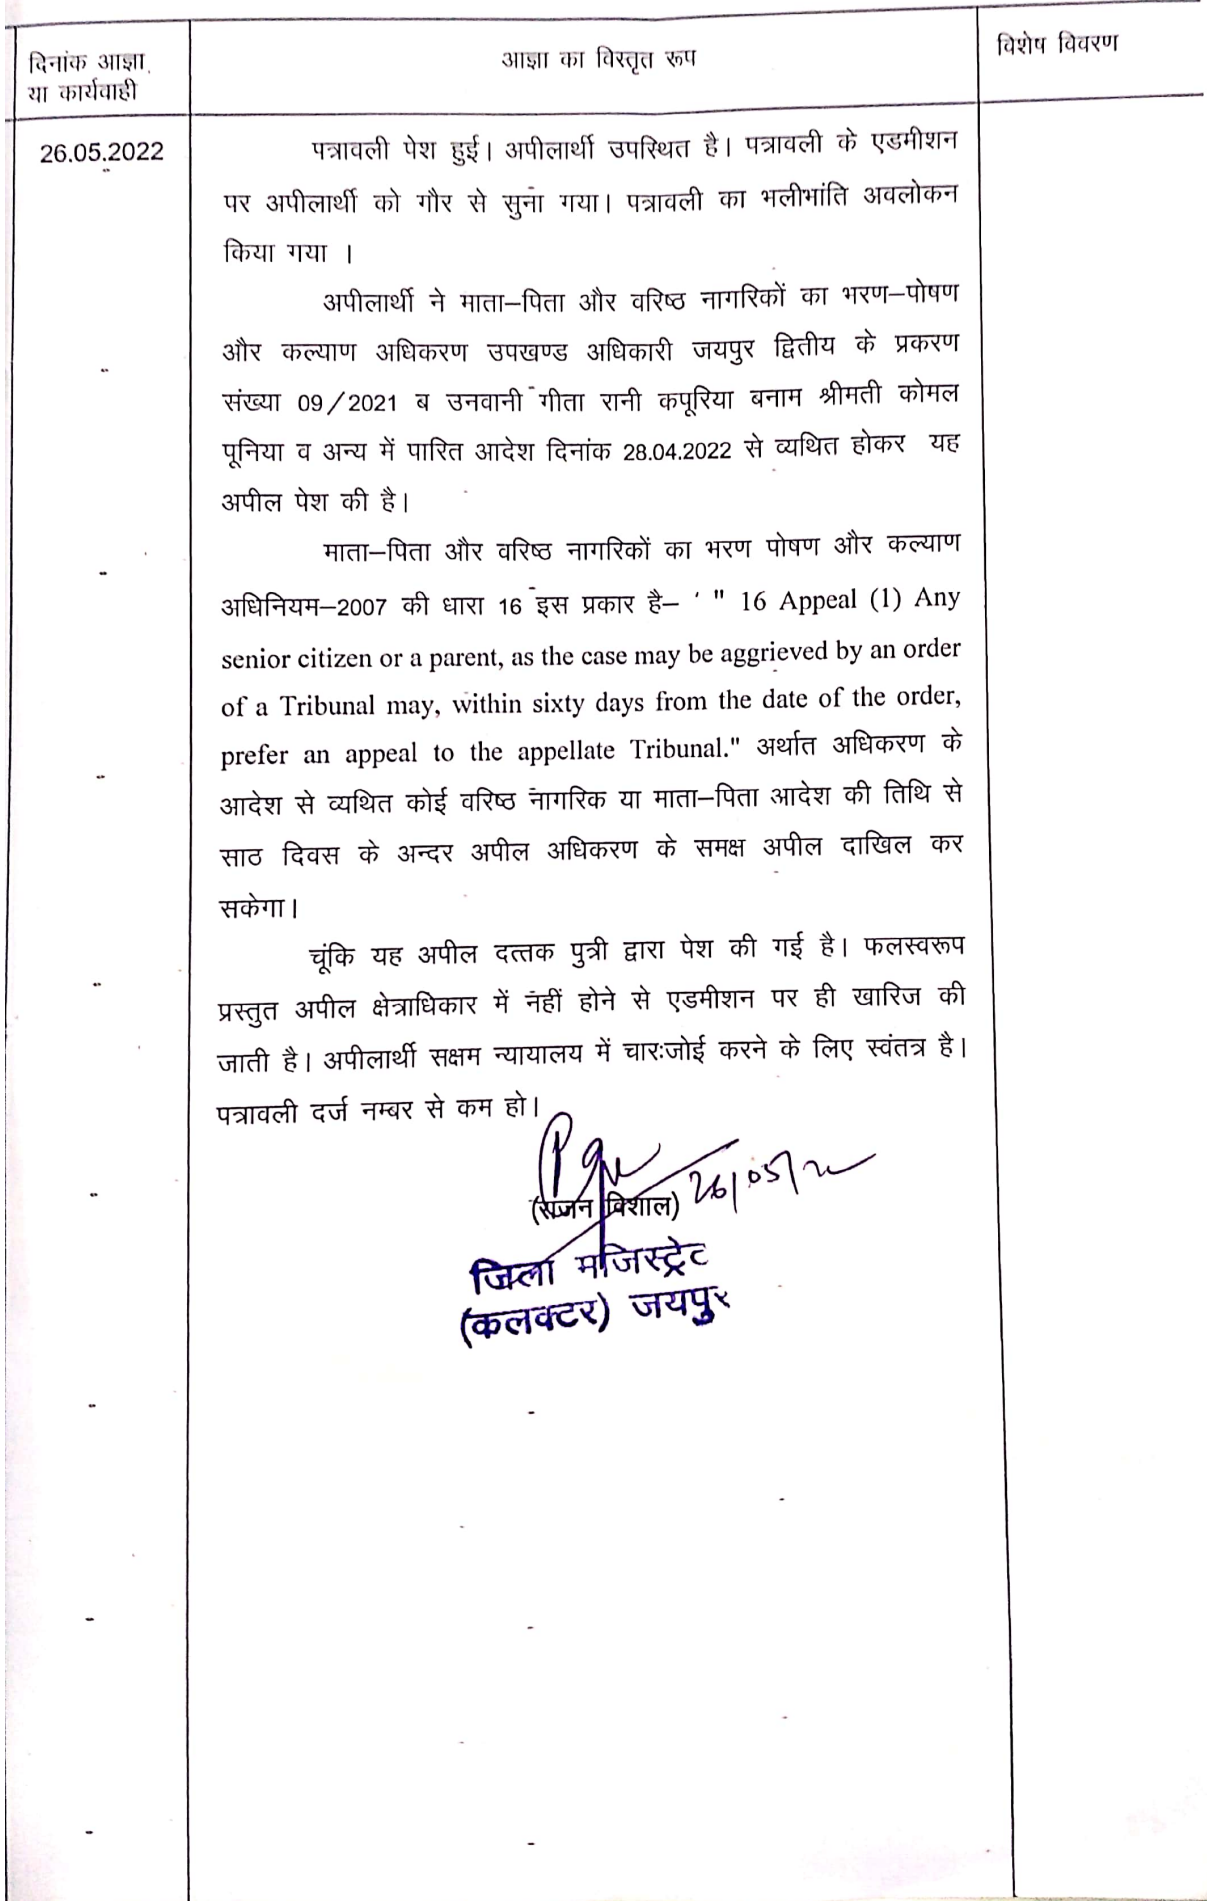 दिनांक आज्ञा
या कार्यवाही
आज्ञा का विस्तृत रूप
विशेष विवरण
26.05.2022
पत्रावली पेश हुई। अपीलार्थी उपस्थित है। पत्रावली के एडमीशन
पर अपीलार्थी को गौर से सुना गया। पत्रावली का भलीभांति अवलोकन
किया गया ।
अपीलार्थी ने माता–पिता और वरिष्ठ नागरिकों का भरण–पोषण
और कल्याण अधिकरण उपखण्ड अधिकारी जयपुर द्वितीय के प्रकरण
संख्या 09/2021 ब उनवानी गीता रानी कपूरिया बनाम श्रीमती कोमल
पूनिया व अन्य में पारित आदेश दिनांक 28.04.2022 से व्यथित होकर यह
अपील पेश की है।
माता–पिता और वरिष्ठ नागरिकों का भरण पोषण और कल्याण
अधिनियम–2007 की धारा 16 इस प्रकार है– ' " 16 Appeal (1) Any
senior citizen or a parent, as the case may be aggrieved by an order
of a Tribunal may, within sixty days from the date of the order,
prefer an appeal to the appellate Tribunal." अर्थात अधिकरण के
आदेश से व्यथित कोई वरिष्ठ नागरिक या माता–पिता आदेश की तिथि से
साठ दिवस के अन्दर अपील अधिकरण के समक्ष अपील दाखिल कर
सकेगा।
चूंकि यह अपील दत्तक पुत्री द्वारा पेश की गई है। फलस्वरूप
प्रस्तुत अपील क्षेत्राधिकार में नहीं होने से एडमीशन पर ही खारिज की
जाती है। अपीलार्थी सक्षम न्यायालय में चारःजोई करने के लिए स्वंतत्र है।
पत्रावली दर्ज नम्बर से कम हो।
26/05/22
(राजन विशाल)
जिला मजिस्ट्रेट
(कलक्टर) जयपुर